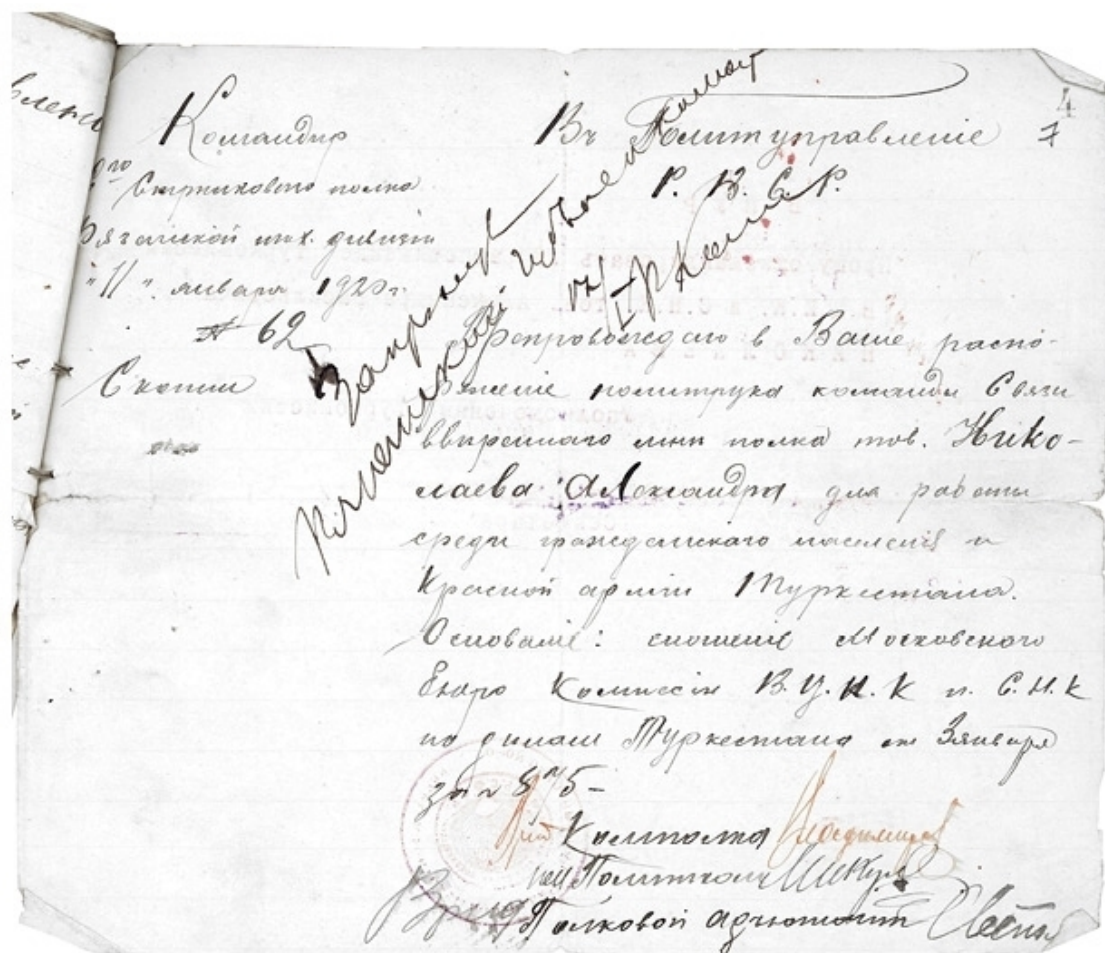 4
7
Командир
Стрелковаго полка
Рязанской пех. дивизи
"11" января 1920 г.
№ 62
Скопин
Въ Политуправленіе
Р. В. С. Р.
Препровождаю в Ваше распо-
ряженіе политрука команды Связи
ввереннаго мне полка тов. Нико-
лаева Александра для работы
среди гражданского населенія и
Красной арміи Туркестана.
Основаніе: сношеніе Московского
бюро Комиссіи В.Ц.И.К и С.Н.К
по делам Туркестана от 3 января
за №
Комполка Владимиров
Политком
Полковой адъютант